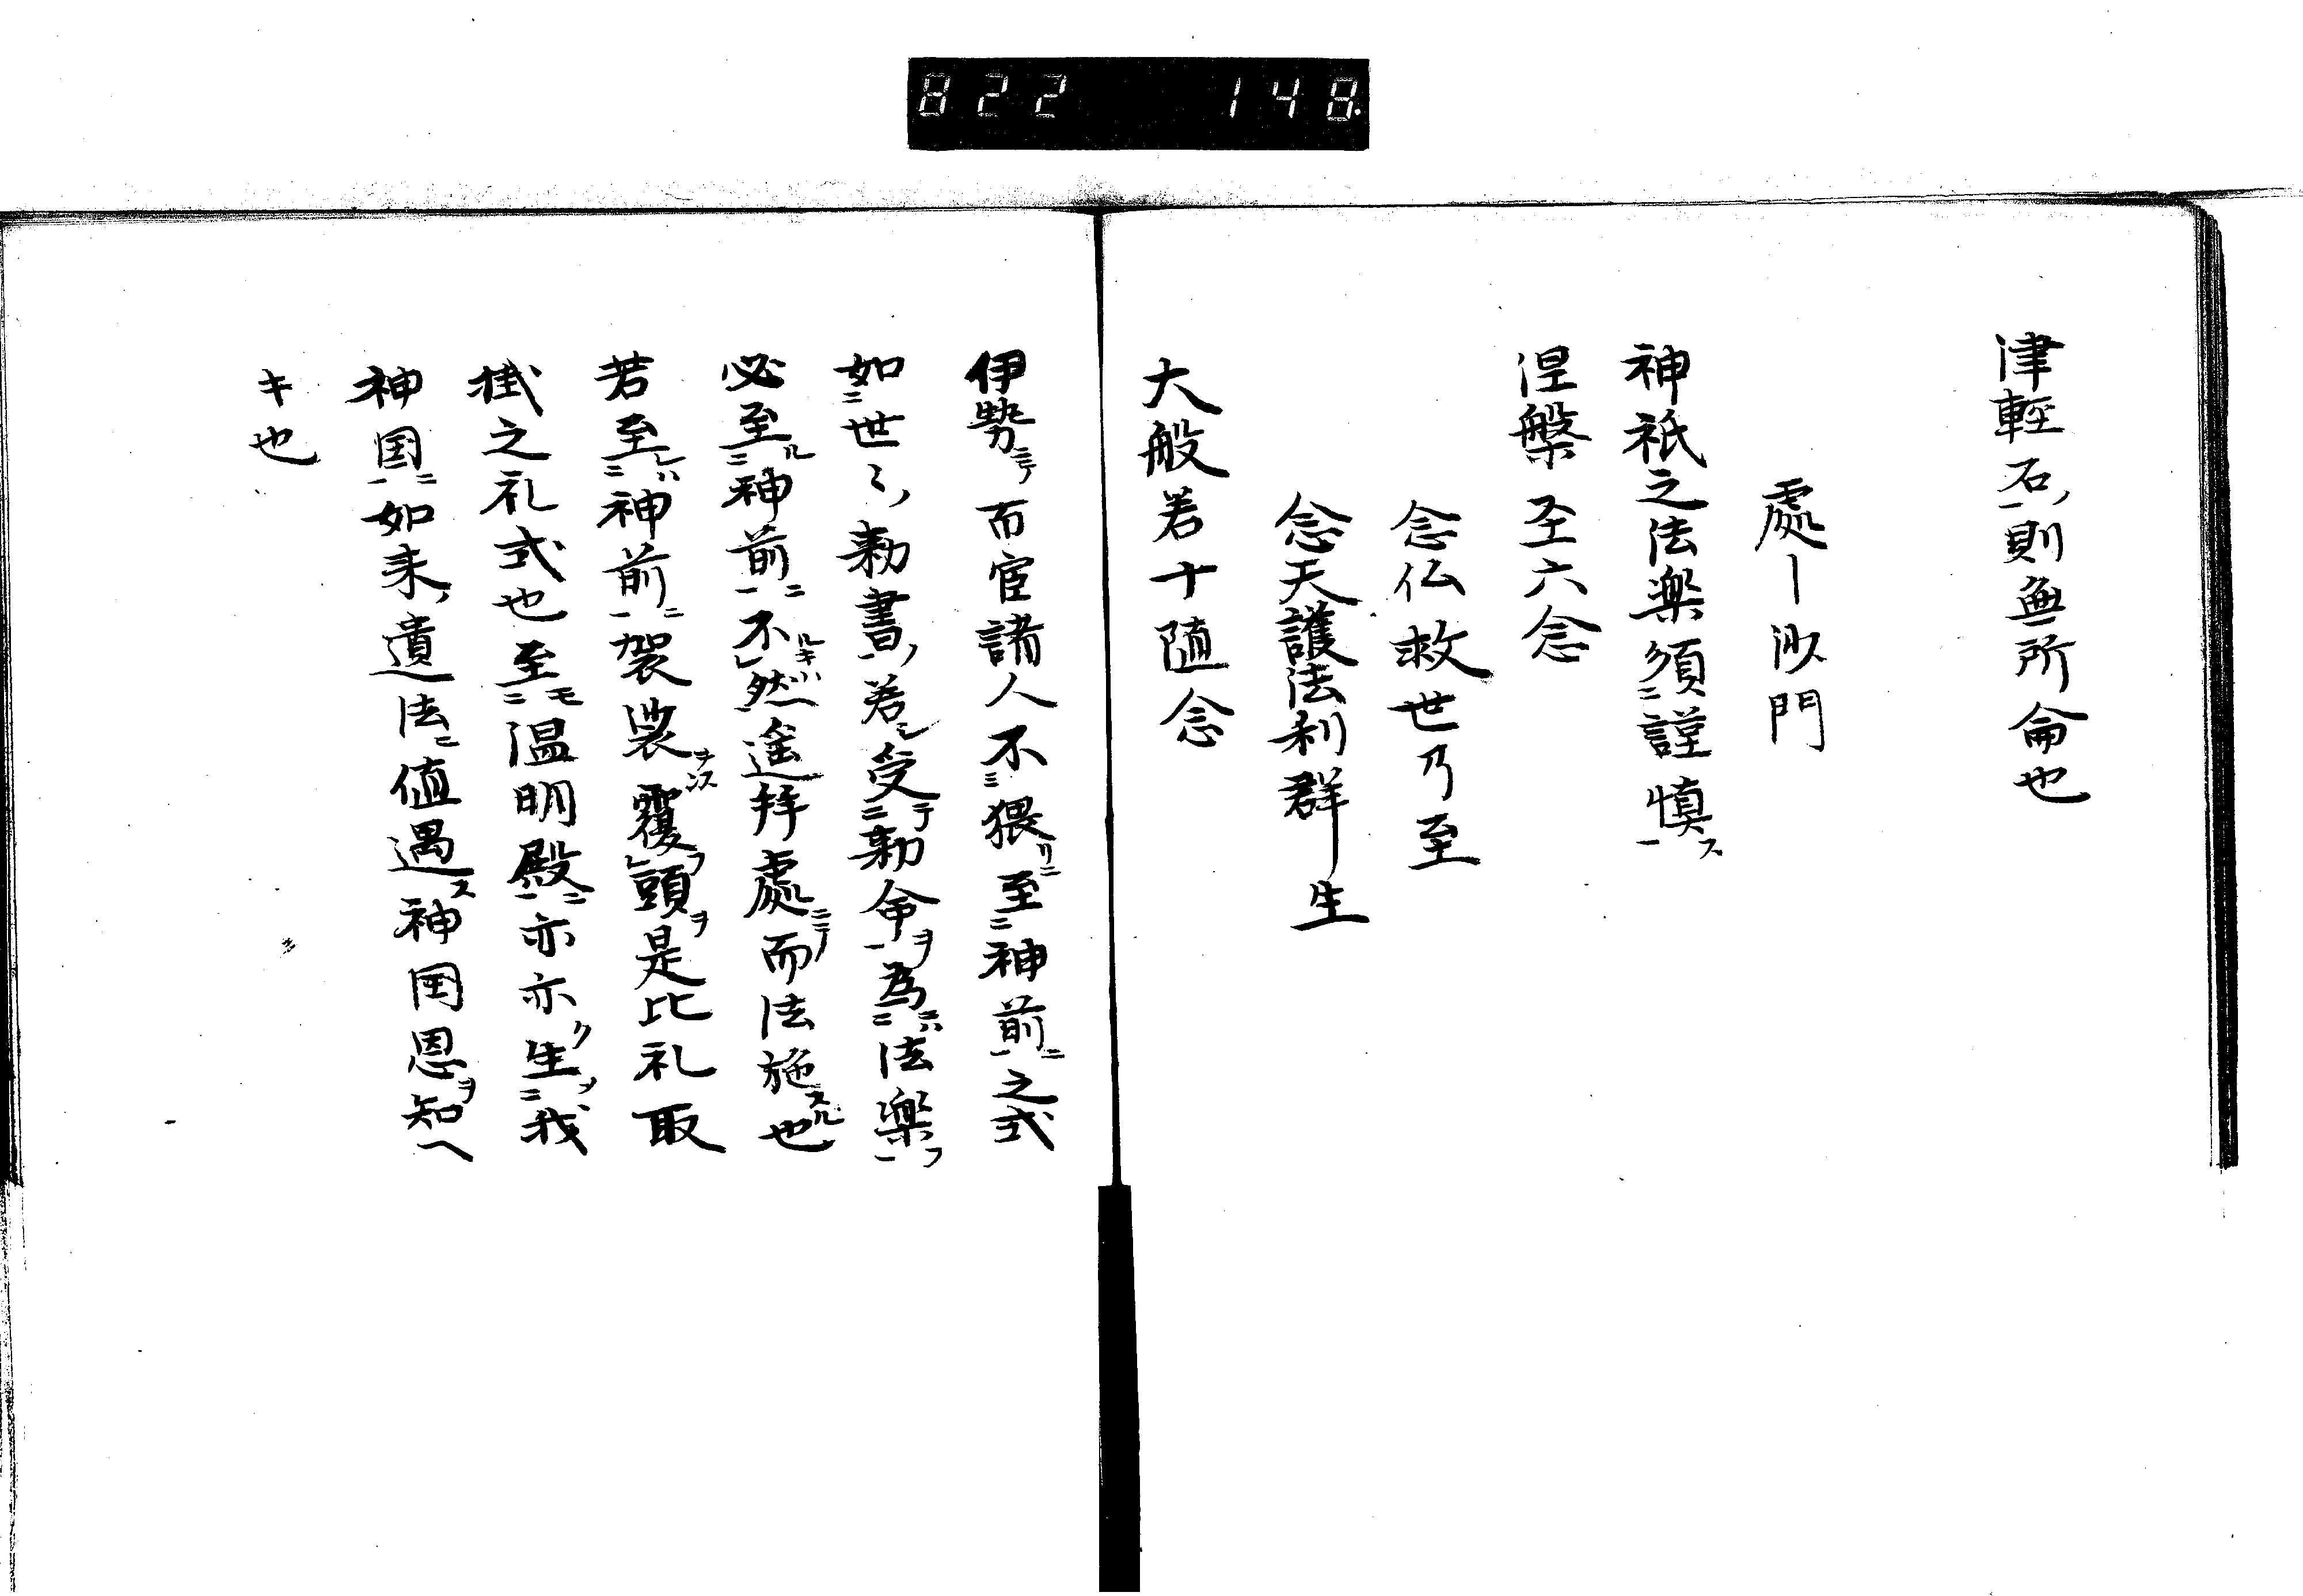 822 148.
津軽石ノ則無所侖也
處〡沙門
神祇之法楽須謹慎ス
涅槃 圣六念
念仏救世乃至
念天護法利群生
大般若十随念
伊勢ニテ而宦諸人不猥リニ至神前ニ之式
如世〻ノ勅書ノ若シ受テ勅命ヲ為ニハ法楽ノ
必至ル神前ニ不ルキハ然遥拝處ニテ而法施スル也
若至レハ神前ニ袈裟ナド覆フ頭ヲ是比礼取
掛之礼式也至モ温明殿ニ亦亦生クノ我
神国ニ如来ノ遺法ニ値遇ス神国恩ヲ知ヘ
キ也